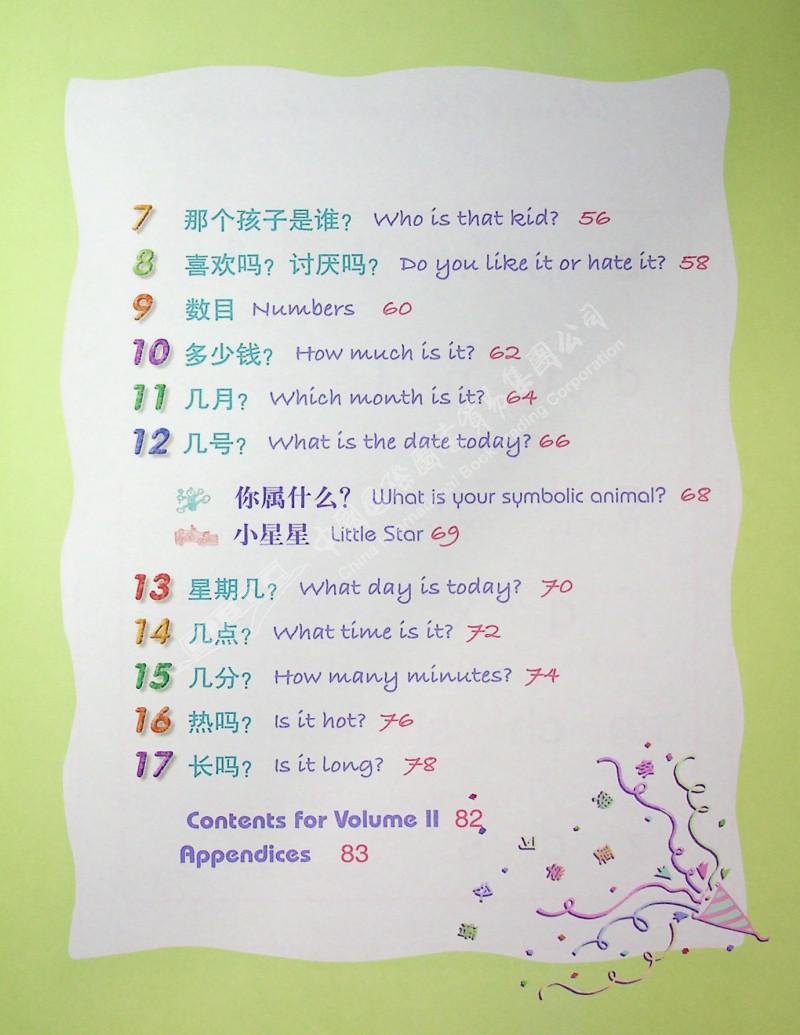 7 那个孩子是谁？ Who is that kid? 56
8 喜欢吗？ 讨厌吗？ Do you like it or hate it? 58
9 数目 Numbers 60
10 多少钱？ How much is it? 62
11 几月？ Which month is it? 64
12 几号？ What is the date today? 66
你属什么？ What is your symbolic animal? 68
小星星 Little Star 69
13 星期几？ What day is today? 70
14 几点？ What time is it? 72
15 几分？ How many minutes? 74
16 热吗？ Is it hot? 76
17 长吗？ Is it long? 78
Contents for Volume II 82
Appendices 83
中国国际图书贸易集团公司
China International Book Trading Corporation